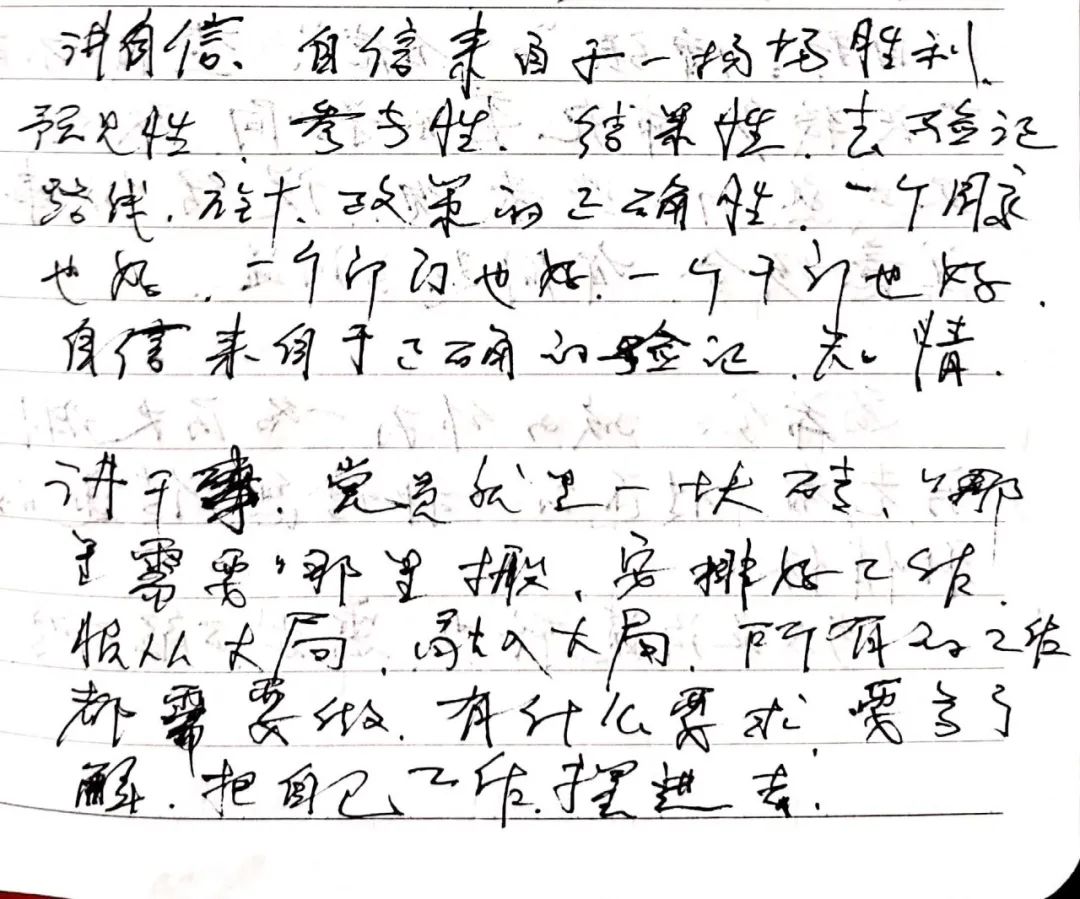 讲自信、自信来自于一场场胜利.
预见性、参与性、结果性、去验证
路线、方针、政策的正确性、一个国家
也好、一个部门也好、一个干部也好.
自信来自于正确的验证、
讲干事、党员就是一块砖、"哪
里需要"哪里搬、安排好工作.
服从大局、融入大局、所有的工作
都需要做、有什么要求、要多了
解、把自己工作摆进去.